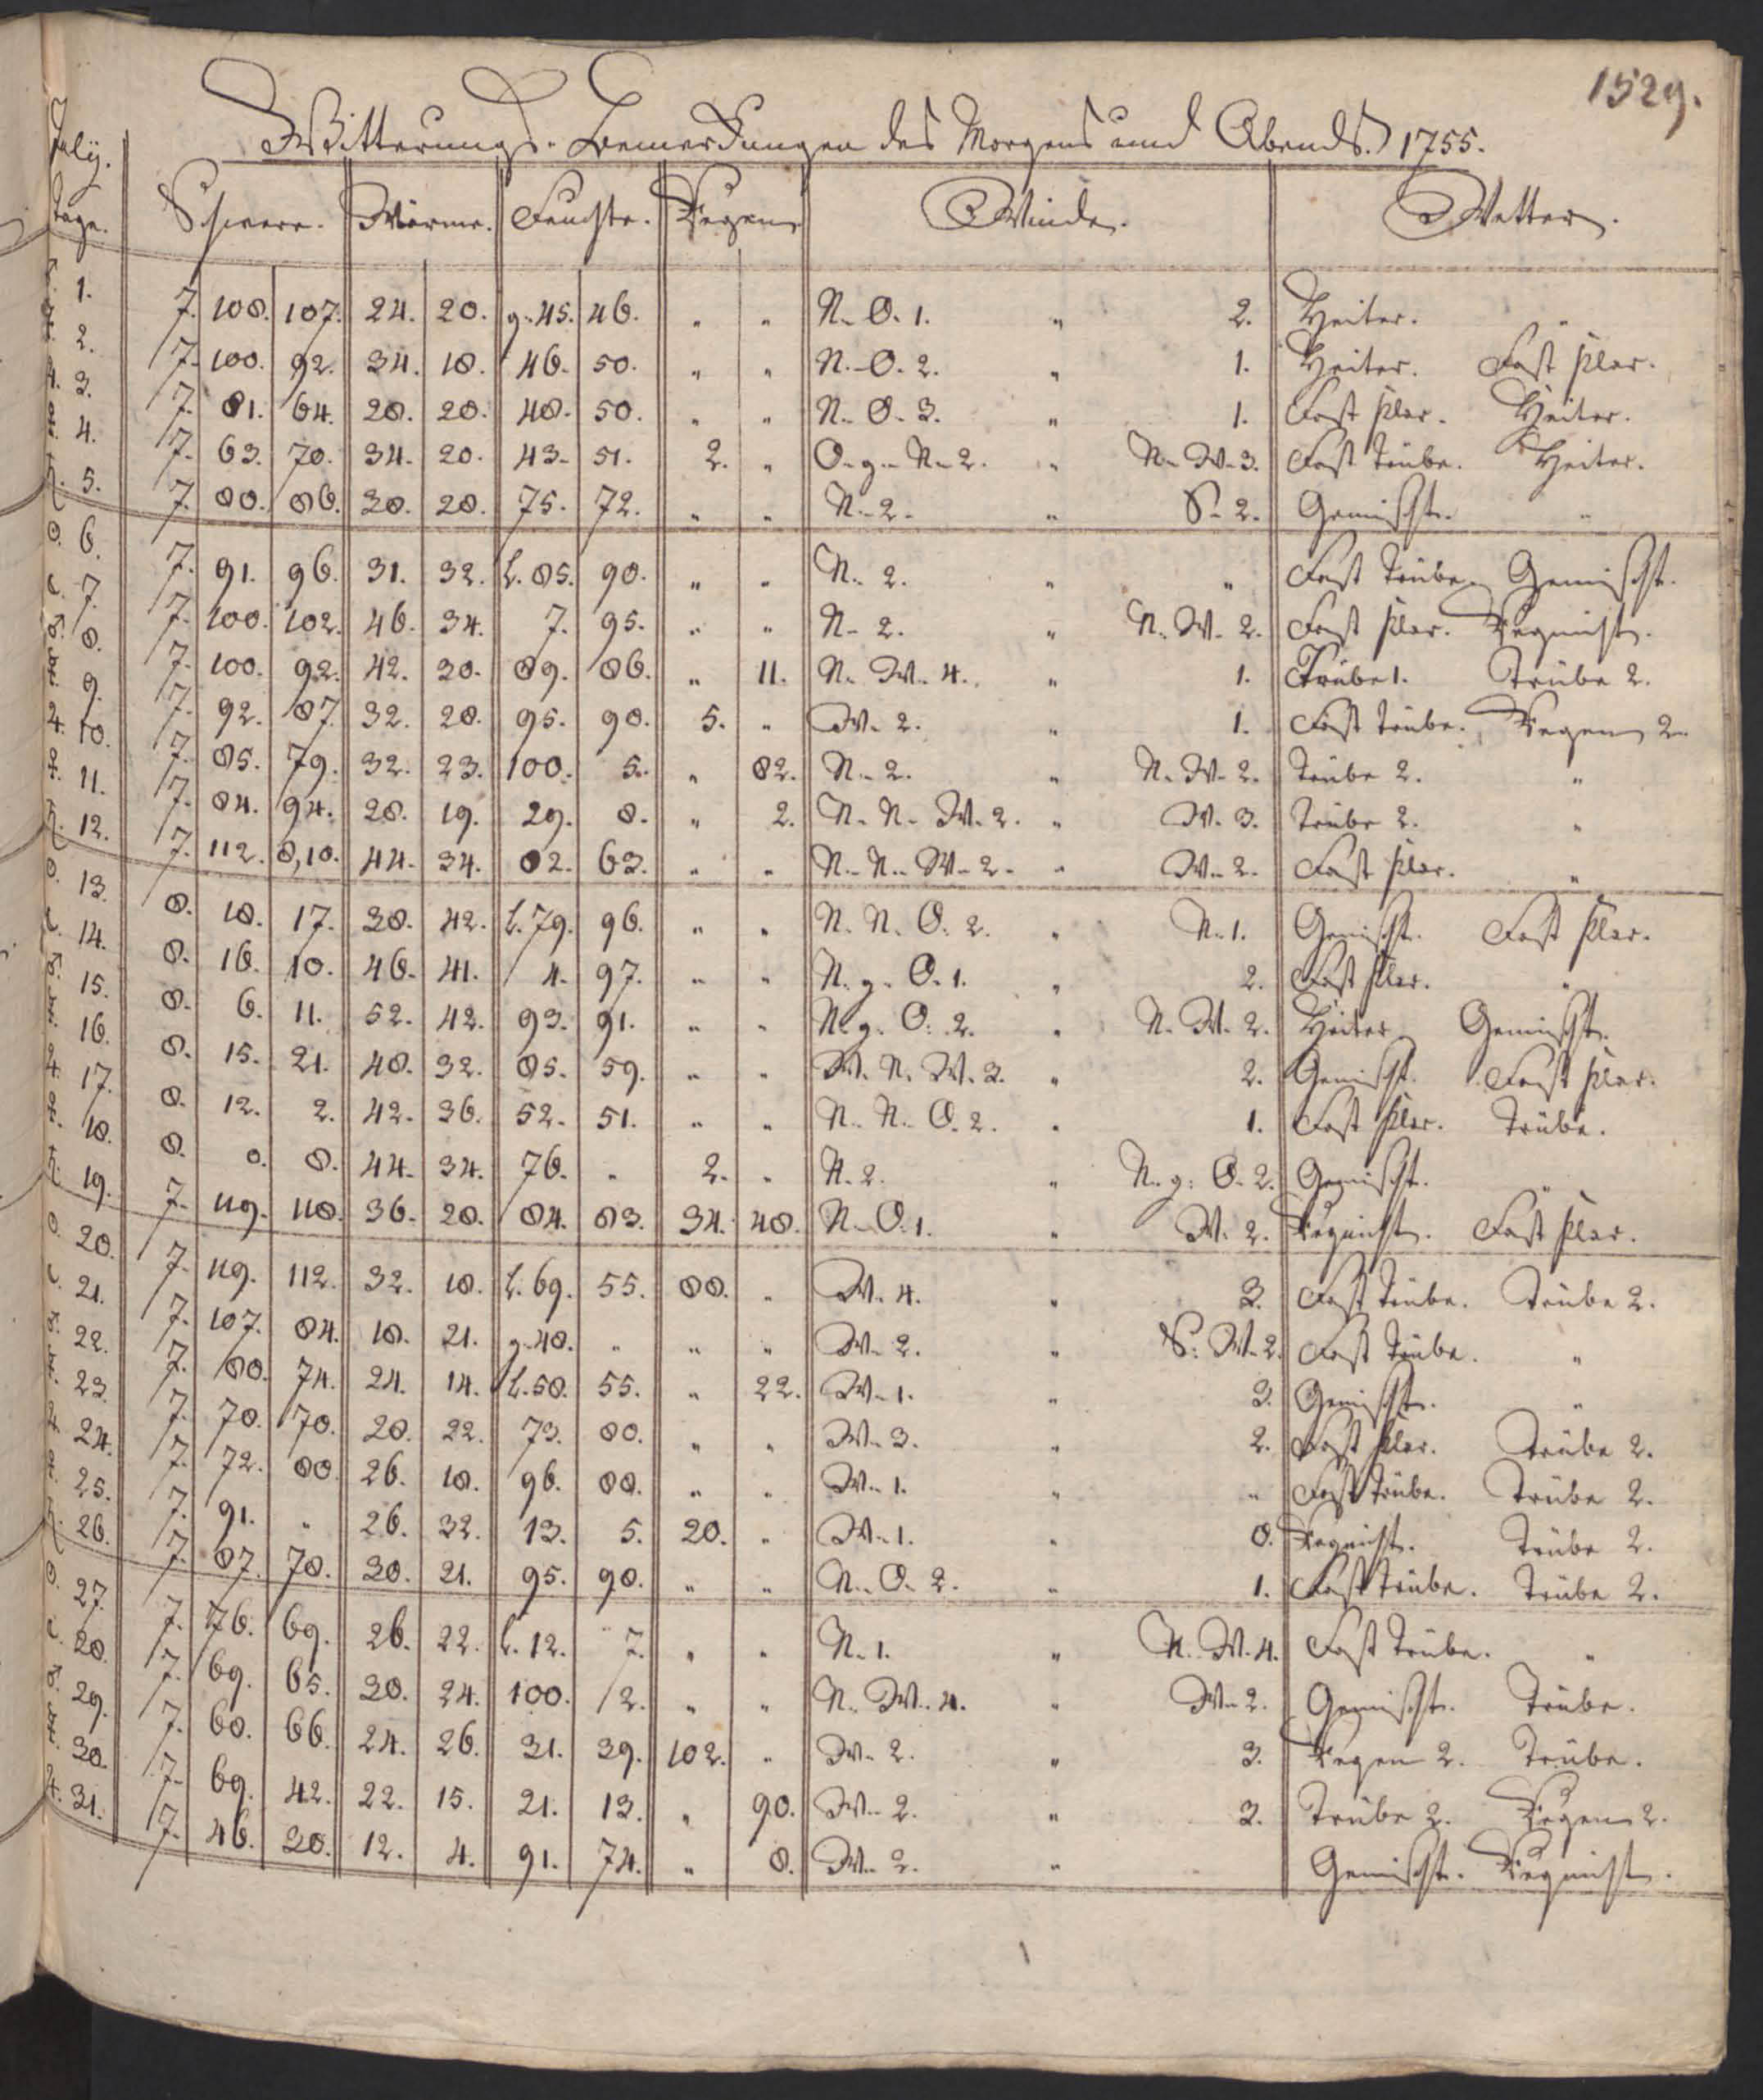 1529.
Witterungs-Bemerkungen des Morgens und Abends. 1755.
July.
Tage. Schwere. Wärme. Feuchte. Regen Winde. Wetter.
♂. 1. 7. 108. 107. 24. 20. g. 45. 46. " " N. O. 1. " 2. Heiter. "
☿. 2. 7. 100. 92. 34. 18. 46. 50. " " N. O. 2. " 1. Heiter. Fast klar.
♃. 3. 7. 81. 64. 28. 20. 48. 50. " " N. O. 3. " 1. Fast klar. Heiter.
♀. 4. 7. 63. 70. 34. 20. 43. 51. 2. " O. g. N. 2. " N. W. 3. Fast trübe. Heiter.
♄. 5. 7. 80. 86. 30. 28. 75. 72. " " N. 2. " S. 2. Gemischt. "
☉. 6. 7. 91. 96. 31. 32. L. 85. 90. " " N. 2. " " Fast trübe. Gemischt.
☾. 7. 7. 100. 102. 46. 34. 7. 95. " " N. 2. " N. W. 2. Fast klar. Regnicht.
♂. 8. 7. 100. 92. 42. 30. 89. 86. " 11. N. W. 4. " 1. Trübe 1. Trübe 2.
☿. 9. 7. 92. 87. 32. 28. 95. 98. 5. " W. 2. " 1. Fast trübe. Regen 2.
♃. 10. 7. 85. 79. 32. 23. 100. 5. " 82. N. 2. " N. W. 2. Trübe 2. "
♀. 11. 7. 84. 94. 28. 19. 29. 8. " 2. N. N. W. 2. " W. 3. Trübe 2. "
♄. 12. 7. 112. 8,10. 44. 34. 82. 63. " " N. N. W. 2. " W. 2. Fast klar. "
☉. 13. 8. 18. 17. 38. 42. L. 79. 96. " " N. N. O. 2. " N. 1. Gemischt. Fast klar.
☾. 14. 8. 16. 10. 46. 41. 4. 97. " " N. g. O. 1. " 2. Fast klar. "
♂. 15. 8. 6. 11. 52. 42. 93. 91. " " N. g. O. 2. " N. W. 2. Heiter Gemischt.
☿. 16. 8. 15. 21. 48. 32. 85. 59. " " W. N. W. 3. " 2. Gemischt. Fast klar.
♃. 17. 8. 12. 2. 42. 36. 52. 51. " " N. N. O. 2. " 1. Fast klar. Trübe.
♀. 18. 8. 0. 8. 44. 34. 76. " 2. " N. 2. " N. g. O. 2. Gemischt. "
♄. 19. 7. 119. 118. 36. 28. 84. 83. 34. 48. N. O. 1. " W. 2. Regnicht. Fast klar.
☉. 20. 7. 119. 112. 32. 18. L. 69. 55. 88. " W. 4. " 3. Fast trübe. Trübe 2.
☾. 21. 7. 107. 84. 18. 21. g. 48. " " " W. 2. " S. W. 2. Fast trübe. "
♂. 22. 7. 80. 74. 24. 14. L. 58. 55. " 22. W. 1. " 3. Gemischt. "
☿. 23. 7. 70. 70. 28. 22. 73. 80. " " W. 3. " 2. Fast klar. Trübe 2.
♃. 24. 7. 72. 80. 26. 18. 96. 88. " " W. 1. " " Fast trübe. Trübe 2.
♀. 25. 7. 91. " 26. 32. 13. 5. 20. " W. 1. " 0. Regnicht. Trübe 2.
♄. 26. 7. 87. 78. 30. 21. 95. 90. " " N. O. 2. " 1. Fast trübe. Trübe 2.
☉. 27. 7. 76. 69. 26. 22. L. 12. 7. " " N. 1. " N. W. 4. Fast trübe. "
☾. 28. 7. 69. 65. 30. 24. 100. 2. " " N. W. 4. " W. 2. Gemischt. Trübe.
♂. 29. 7. 60. 66. 24. 26. 31. 39. 102. " W. 2. " 3. Regen 2. Trübe.
☿. 30. 7. 69. 42. 22. 15. 21. 13. " 90. W. 2. " 3. Trübe 2. Regen 2.
♃. 31. 7. 46. 30. 12. 4. 91. 74. " 8. W. 2. " Gemischt. Regnicht.